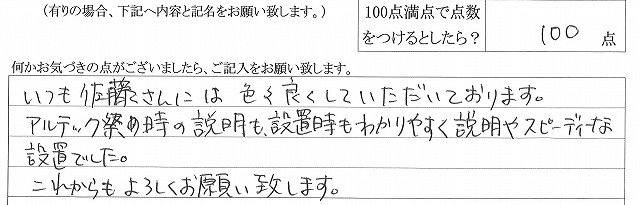 (有りの場合、下記へ内容と記名をお願い致します。)
100点満点で点数
をつけるとしたら？
100 点
何かお気づきの点がございましたら、ご記入をお願い致します。
いつも佐藤さんには色々良くしていただいております。
アルテック締め時の説明も、設置時もわかりやすく説明やスピーディーな
設置でした。
これからもよろしくお願い致します。